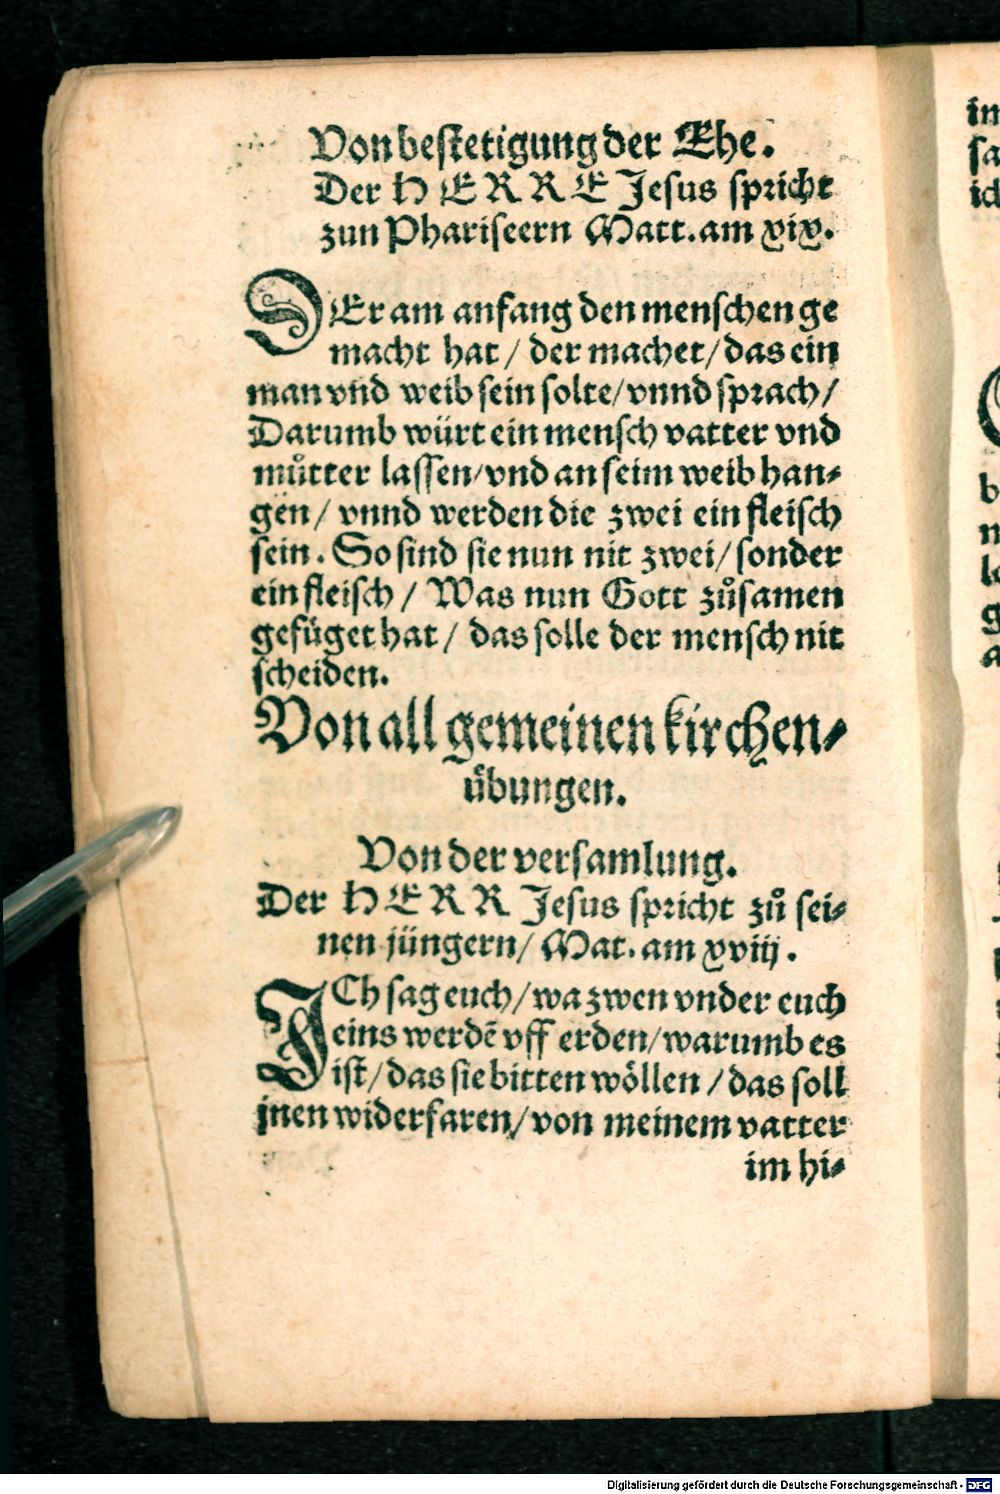 Von bestetigung der Ehe.
Der HERRE Jesus spricht
zun Phariseern Matt. am xix.
DEr am anfang den menschen ge
macht hat / der machet / das ein
man vnd weib sein solte / vnnd sprach /
Darumb würt ein mensch vatter vnd
můtter lassen / vnd an seim weib han⸗
gen / vnnd werden die zwei ein fleisch
sein. So sind sie nun nit zwei / sonder
ein fleisch / Was nun Gott zůsamen
gefüget hat / das solle der mensch nit
scheiden.
Von all gemeinen kirchen⸗
übungen.
Von der versamlung.
Der HERR Jesus spricht zů sei⸗
nen jüngern / Mat. am xviij.
ICh sag euch / wa zwen vnder euch
eins werdē vff erden / warumb es
ist / das sie bitten wöllen / das soll
jnen widerfaren / von meinem vatter
im hi⸗
im
sa
id
b
n
g
a
Digitalisierung gefördert durch die Deutsche Forschungsgemeinschaft - DFG